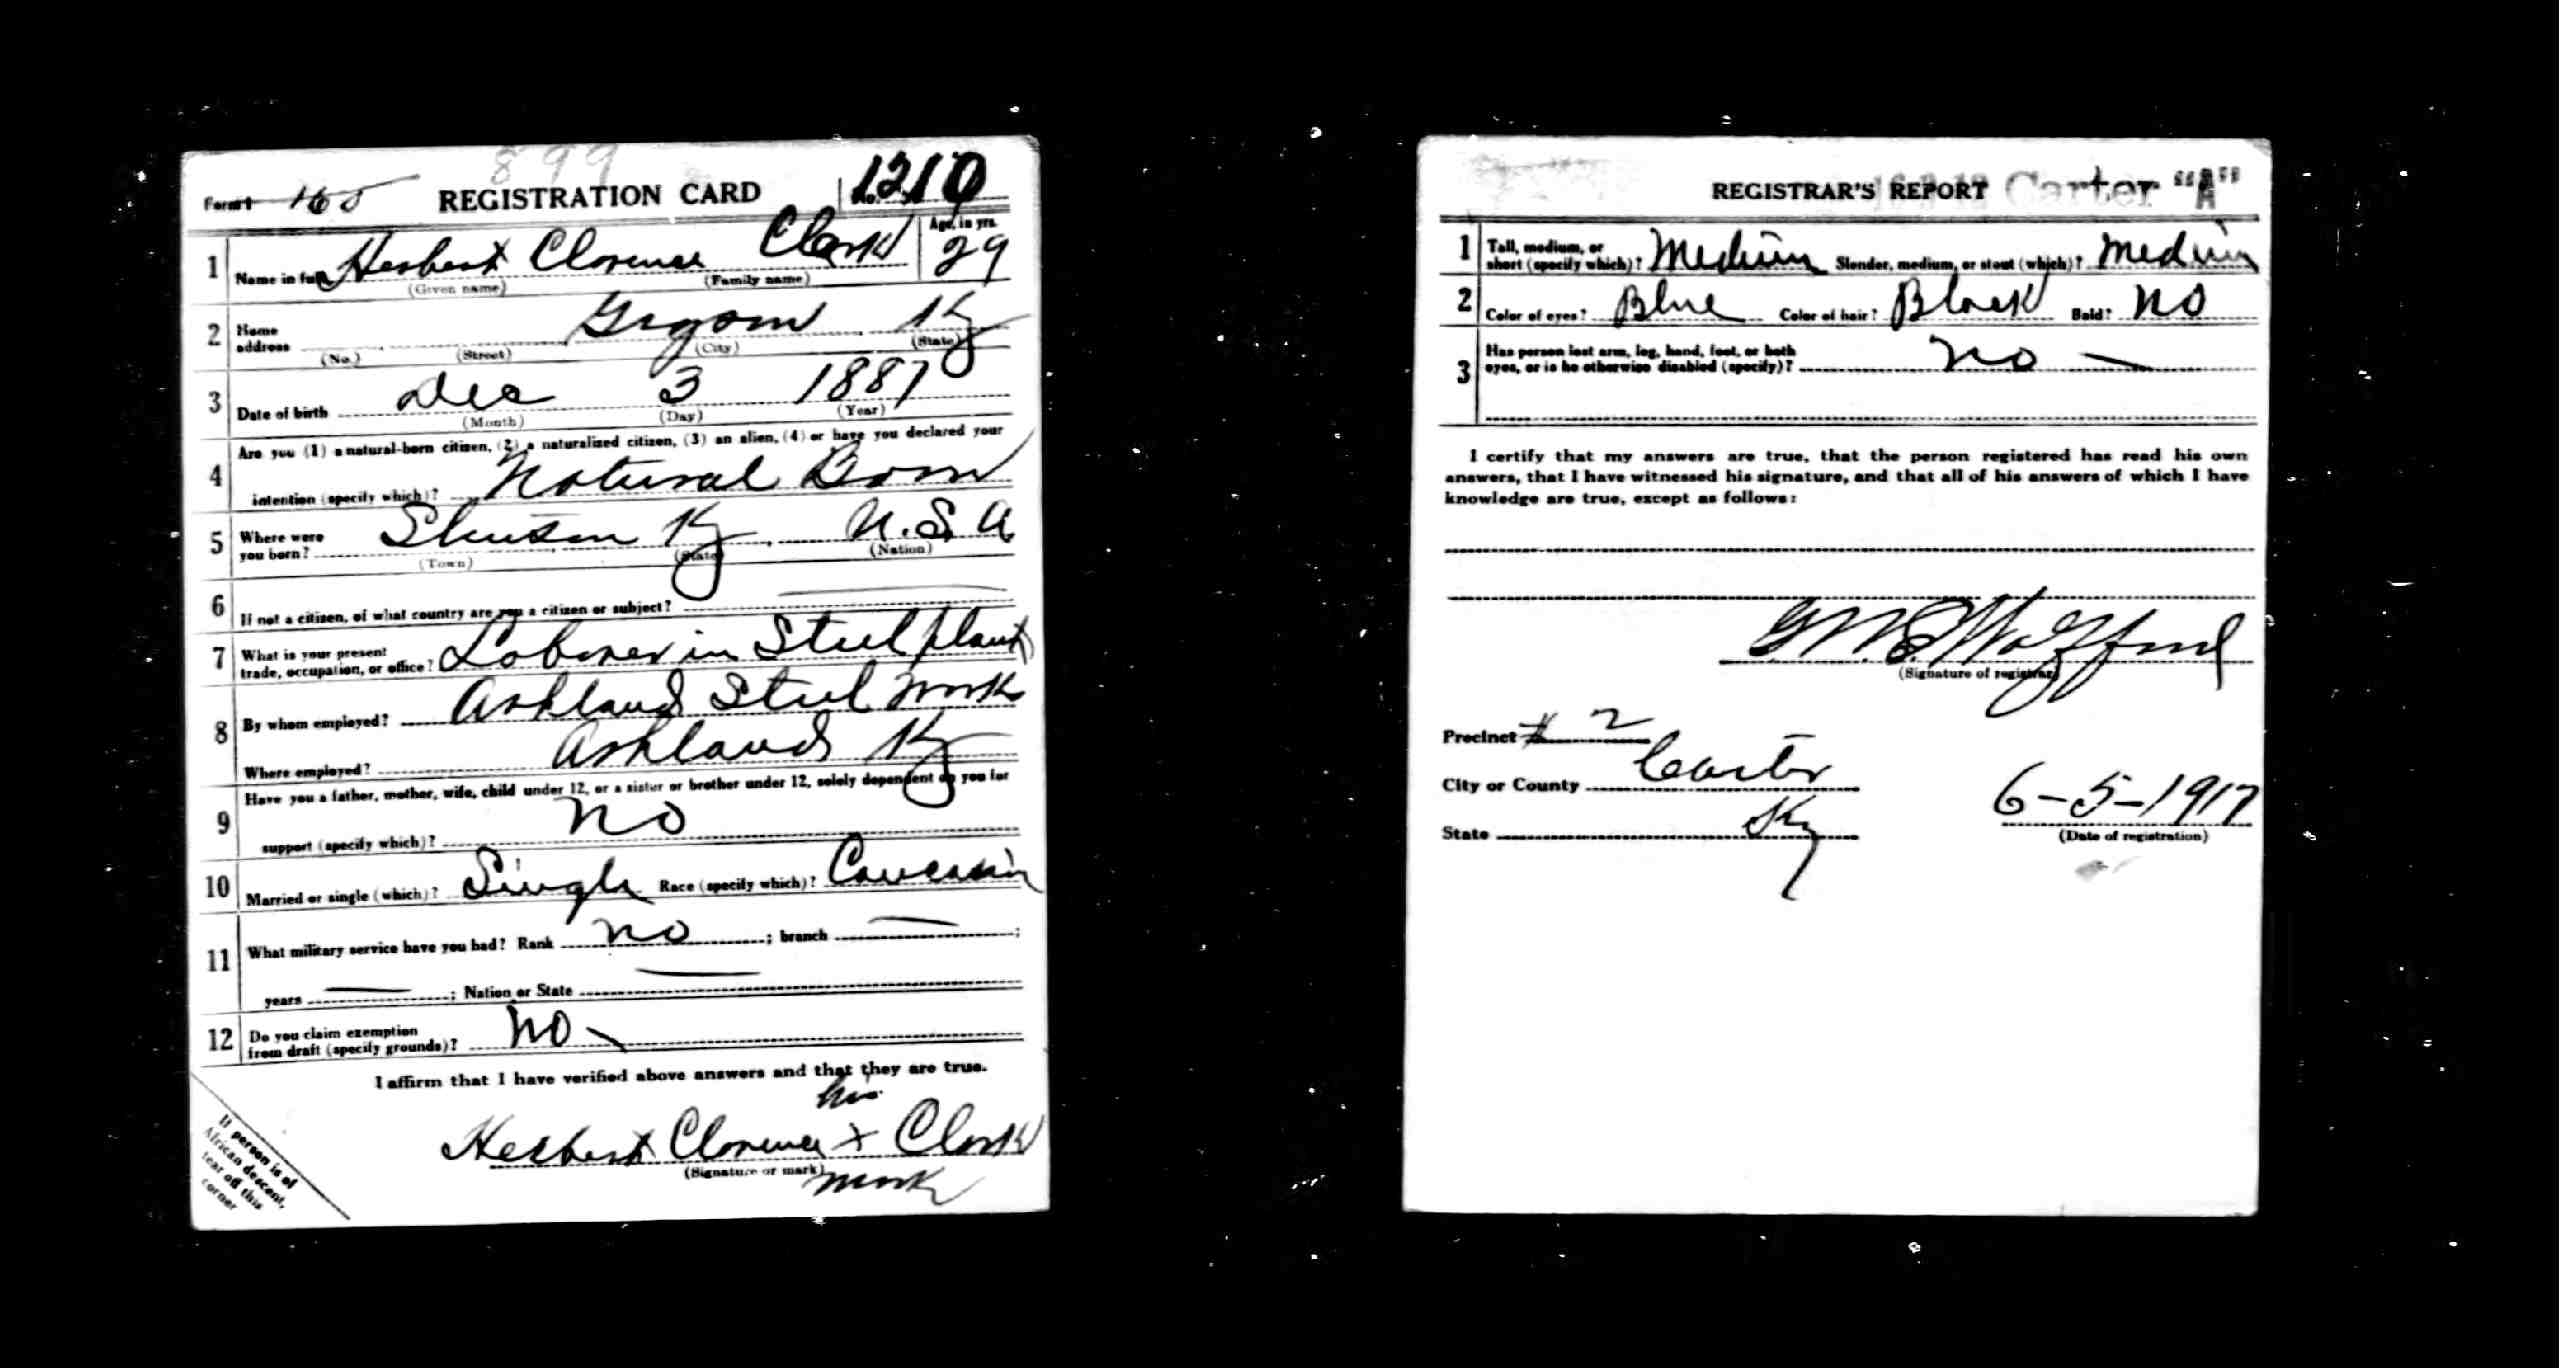 899
Form 1 165 REGISTRATION CARD No. 1210
1 Name in full Herbert Clarence Clark Age, in yrs. 29
(Given name) (Family name)
2 Home address Ky
(No.) (Street) (City) (State)
3 Date of birth Dec 3 1887
(Month) (Day) (Year)
4 Are you (1) a natural-born citizen, (2) a naturalized citizen, (3) an alien, (4) or have you declared your
intention (specify which)? Natural Born
5 Where were you born? Ky U.S.A
(Town) (State) (Nation)
6 If not a citizen, of what country are you a citizen or subject? —
7 What is your present trade, occupation, or office? Laborer in Steel plant
8 By whom employed? Ashland Steel Work
Where employed? Ashland Ky
9 Have you a father, mother, wife, child under 12, or a sister or brother under 12, solely dependent on you for
support (specify which)? No
10 Married or single (which)? Single Race (specify which)? Caucasin
11 What military service have you had? Rank no ; branch — ;
years — ; Nation or State —
12 Do you claim exemption from draft (specify grounds)? No
I affirm that I have verified above answers and that they are true.
his
Herbert Clarence x Clark
(Signature or mark)
mark
If person is of
African descent,
tear off this
corner
REGISTRAR'S REPORT Carter "A"
1 Tall, medium, or short (specify which)? Medium Slender, medium, or stout (which)? Medium
2 Color of eyes? Blue Color of hair? Black Bald? No
3 Has person lost arm, leg, hand, foot, or both
eyes, or is he otherwise disabled (specify)? No
I certify that my answers are true, that the person registered has read his own
answers, that I have witnessed his signature, and that all of his answers of which I have
knowledge are true, except as follows:
Wolfford
(Signature of registrar)
Precinct # 2
City or County Carter
State Ky
6-5-1917
(Date of registration)